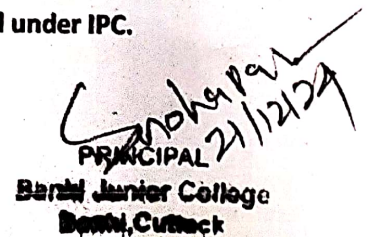 l under IPC.
21/12/24
PRINCIPAL
Banki Junior College
Banki, Cuttack